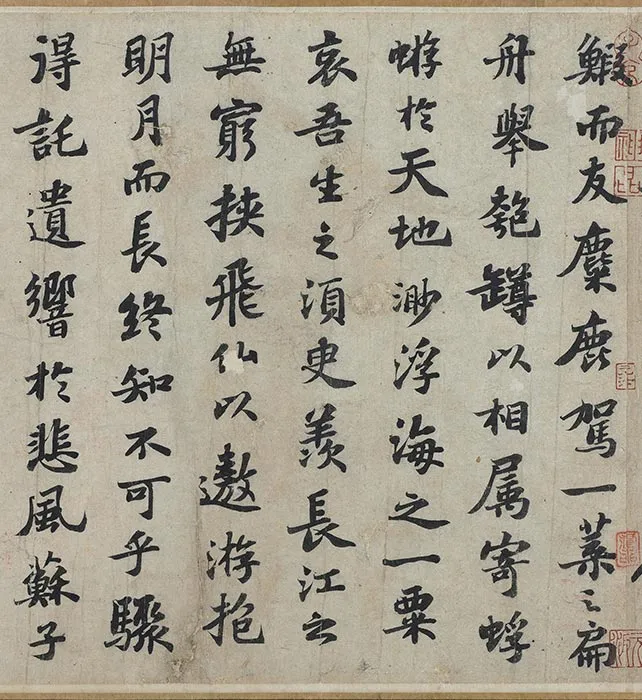 鰕而友麋鹿駕一葉之扁
舟舉匏罇以相属寄蜉
蝣於天地渺浮海之一粟
哀吾生之須臾羨長江之
無窮挾飛仙以遨游抱
明月而長終知不可乎驟
得託遺響於悲風蘇子